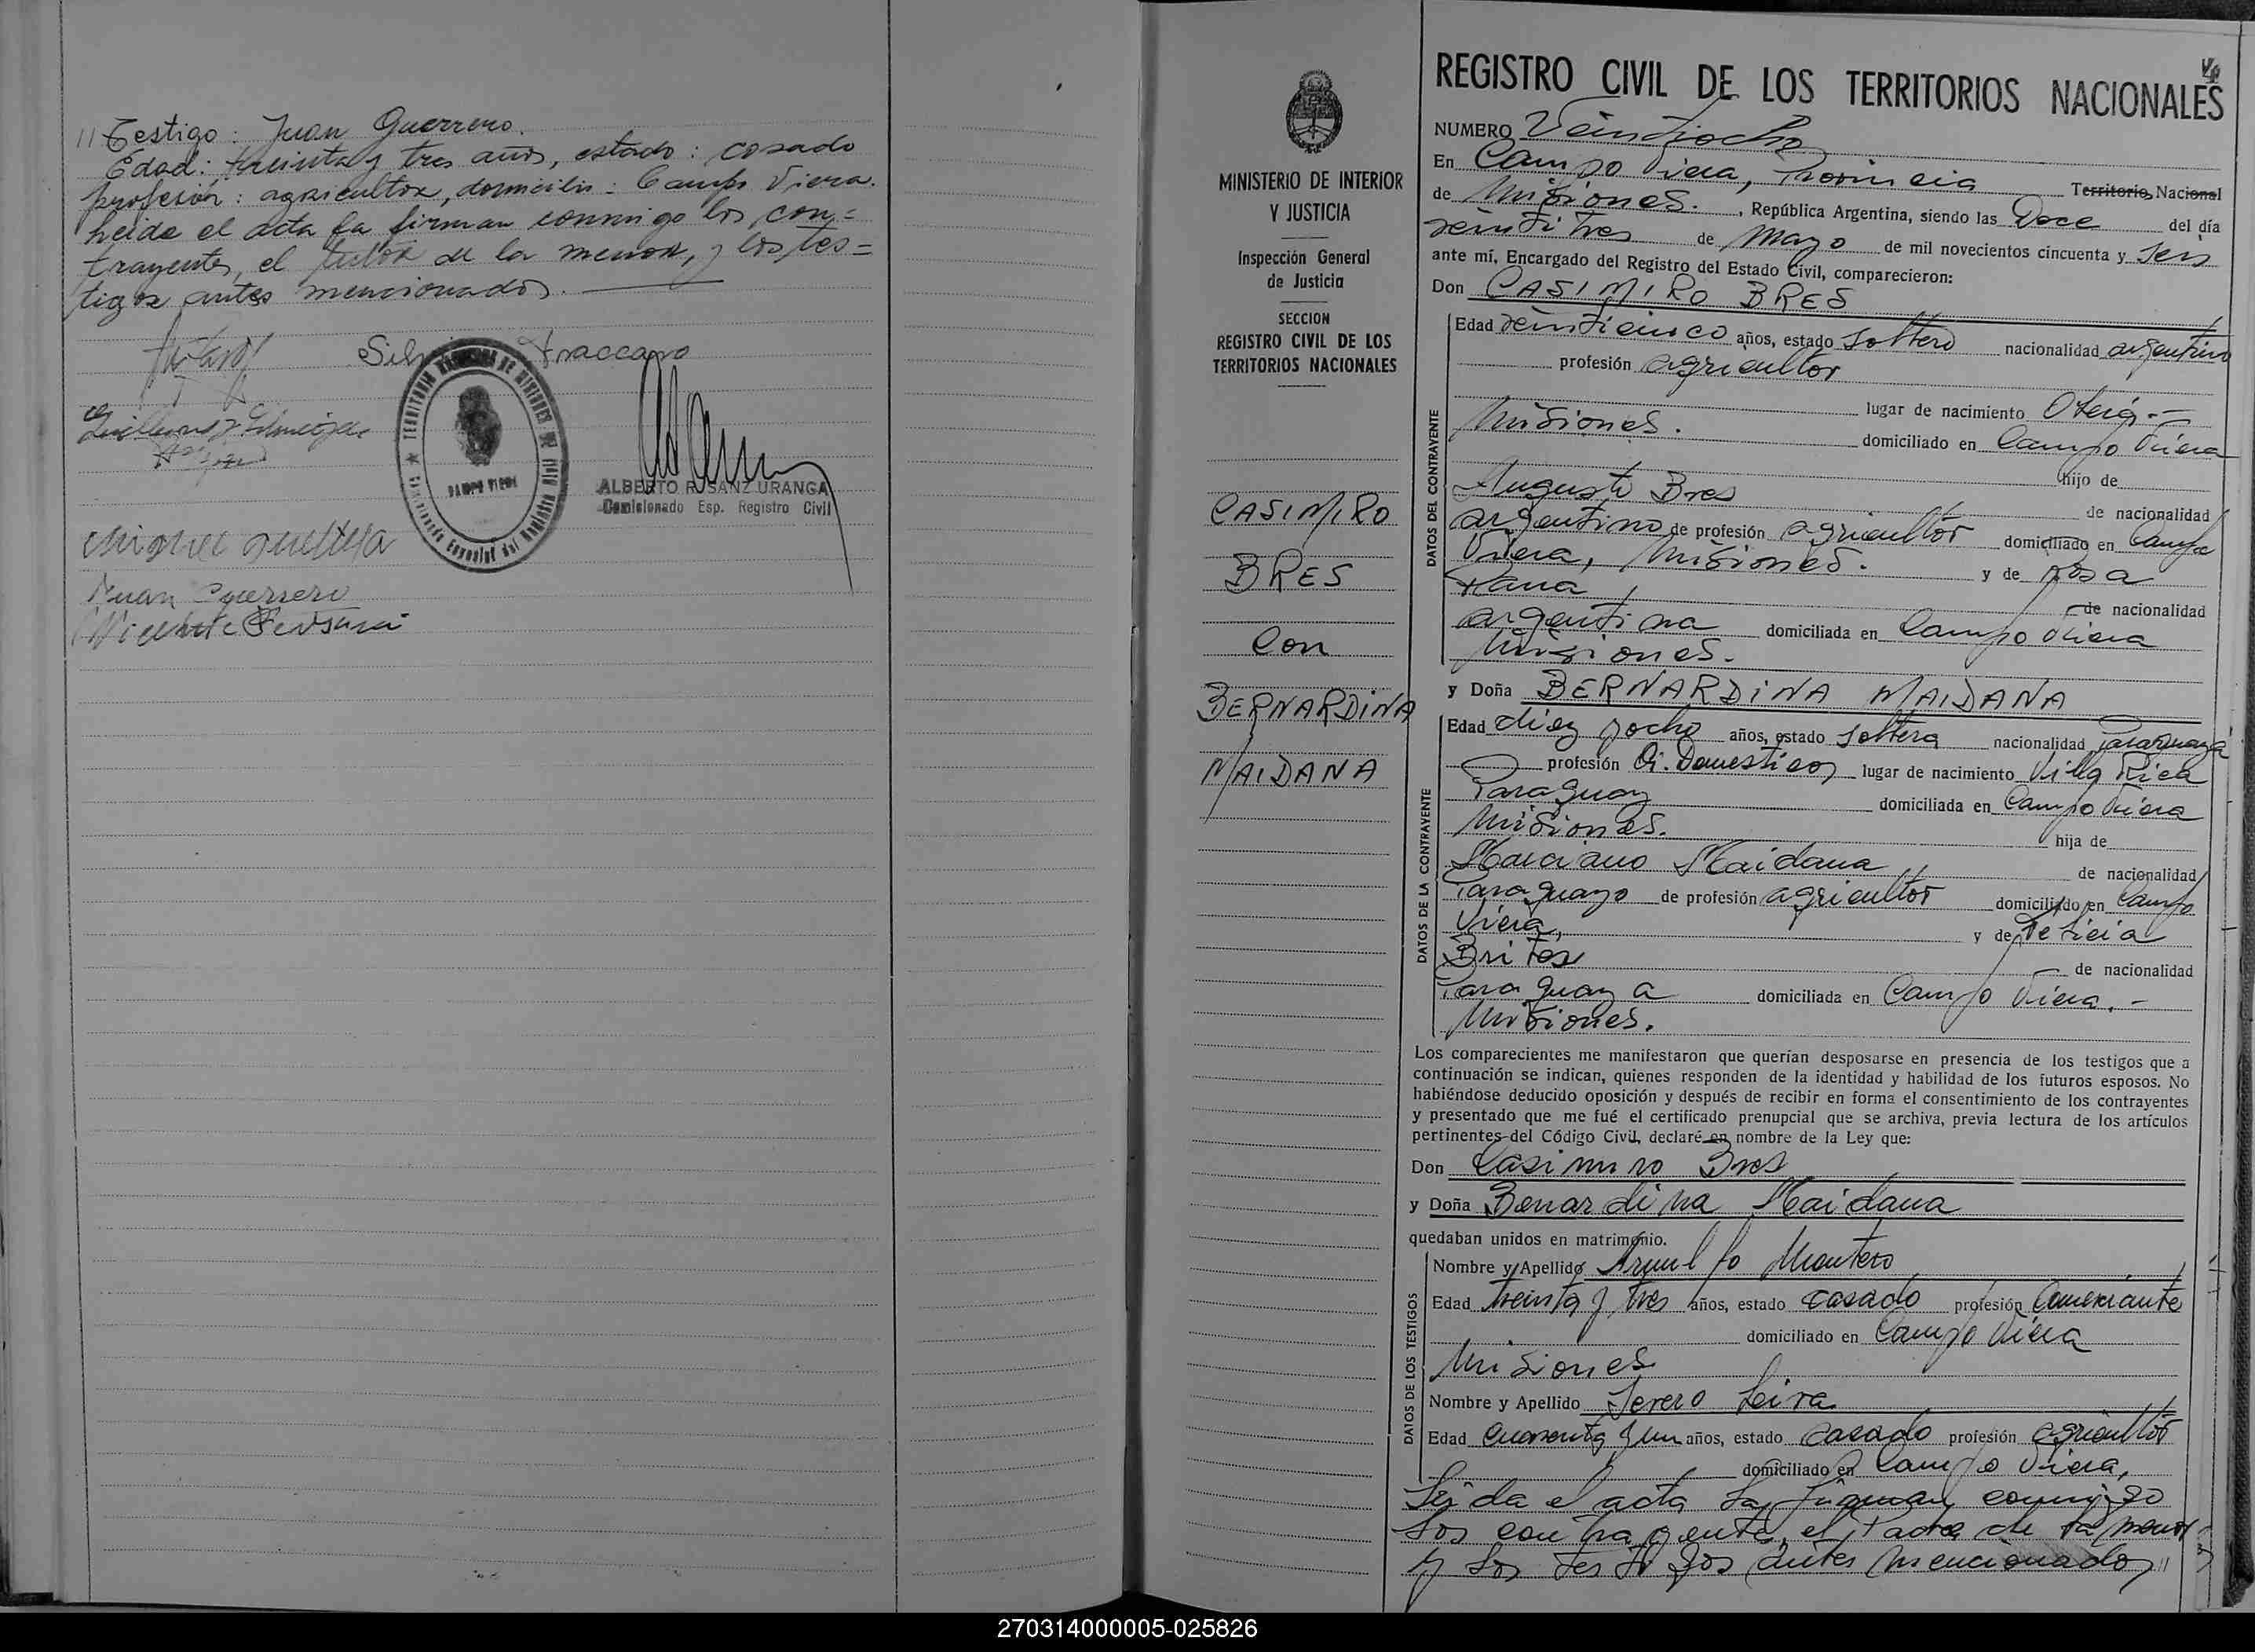 // Testigo: Juan Guerrero.
Edad: treinta y tres años, estado: casado
profesión: agricultor, domicilio: Campo Viera.
Leida el acta la firman conmigo los con=
trayentes, el tutor de la menor, y los tes=
tigos antes mencionados.
Fraccaro
TERRITORIO NACIONAL DE MISIONES
CAMPO VIERA
ALBERTO R. SANZ URANGA
Comisionado Esp. Registro Civil
Juan Guerrero
MINISTERIO DE INTERIOR
Y JUSTICIA
Inspección General
de Justicia
SECCION
REGISTRO CIVIL DE LOS
TERRITORIOS NACIONALES
CASIMIRO
BRES
Con
BERNARDINA
MAIDANA
REGISTRO CIVIL DE LOS TERRITORIOS NACIONALES
NUMERO Veintiocho
En Campo Viera, Provincia Territorio Nacional
de Misiones. , República Argentina, siendo las Doce del día
veintitres de Mayo de mil novecientos cincuenta y seis
ante mí, Encargado del Registro del Estado Civil, comparecieron:
Don CASIMIRO BRES
DATOS DEL CONTRAYENTE
Edad veinticinco años, estado soltero nacionalidad argentino
profesión agricultor
lugar de nacimiento Oberá.-
Misiones. domiciliado en Campo Viera
hijo de
Augusto Bres de nacionalidad
argentino de profesión agricultor domiciliado en Campo
Viera, Misiones. y de Rosa
de nacionalidad
argentina domiciliada en Campo Viera
Misiones.
y Doña BERNARDINA MAIDANA
DATOS DE LA CONTRAYENTE
Edad diez y ocho años, estado soltera nacionalidad Paraguaya
profesión Q. Domesticos lugar de nacimiento Villa Rica
Paraguay domiciliada en Campo Viera
Misiones. hija de
Marciano Maidana de nacionalidad
Paraguayo de profesión agricultor domiciliado en Campo
Viera, y de Leticia
Britos de nacionalidad
Paraguaya domiciliada en Campo Viera.-
Misiones.
Los comparecientes me manifestaron que querían desposarse en presencia de los testigos que a
continuación se indican, quienes responden de la identidad y habilidad de los futuros esposos. No
habiéndose deducido oposición y después de recibir en forma el consentimiento de los contrayentes
y presentado que me fué el certificado prenupcial que se archiva, previa lectura de los artículos
pertinentes del Código Civil, declaré en nombre de la Ley que:
Don Casimiro Bres
y Doña Benardina Maidana
quedaban unidos en matrimonio.
DATOS DE LOS TESTIGOS
Nombre y Apellido Arnulfo Montero
Edad treinta y tres años, estado casado profesión Comerciante
domiciliado en Campo Viera
Misiones
Nombre y Apellido Severo Leiva
Edad cuarenta y un años, estado casado profesión agricultor
domiciliado en Campo Viera,
Leida el acta la firman conmigo
los contrayentes, el Padre de la menor
y los testigos antes mencionados //
270314000005-025826